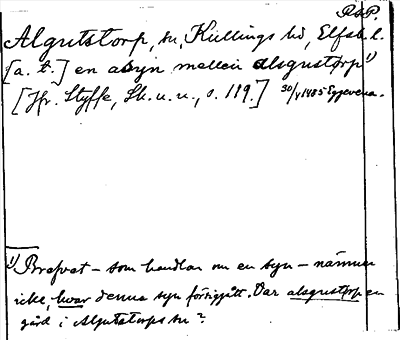 R.A.P.
Algutstorp, sn, Kullings hd, Elfsb. l.
[a. t.] en a syn mellen alsgustorp 1)
[Jfr. Styffe, Sk. u. u., s. 119.] 30/4 1485
1) Brefvet – som handlar om en syn – nämner
icke, hvar denna syn försiggått. Var alsgustorp en
gård i Algutstorps sn?